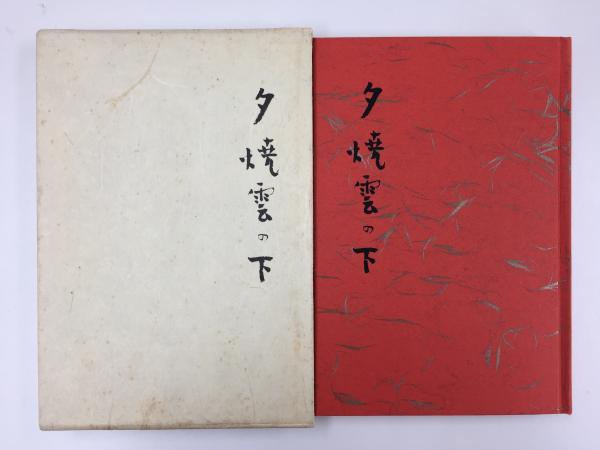 夕燒雲の下
夕燒雲の下